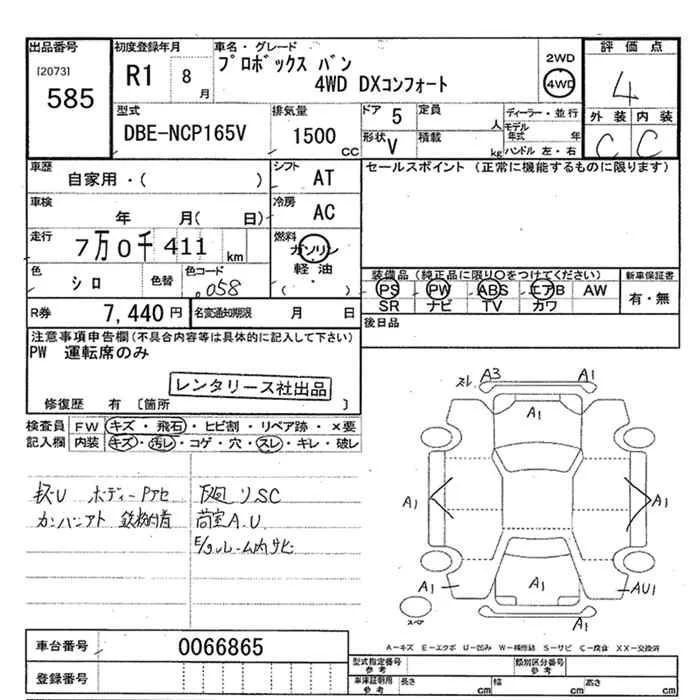 出品番号
[2073]
585
初度登録年月
R1 8月
車名・グレード
プロボックス バン
4WD DXコンフォート
2WD
4WD
評価点
4
外装 内装
C C
型式
DBE-NCP165V
排気量
1500 CC
ドア 5
定員 人
形状 V
積載 kg
ディーラー・並行
モデル年式 年
ハンドル 左・右
車歴
自家用・( )
シフト AT
車検
年 月( 日)
冷房 AC
走行
7万0千411 km
燃料
ガソリン
軽油
( )
色
シロ
色替
色コード
058
R券 7,440円
名変通知期限 月 日
セールスポイント (正常に機能するものに限ります)
装備品 (純正品に限り○をつけてください)
PS PW ABS エアB AW
SR ナビ TV カワ
新車保証書
有・無
後日品
注意事項申告欄(不具合内容等は具体的に記入して下さい)
PW 運転席のみ
レンタリース社出品
修復歴 有 [箇所 ]
検査員記入欄
FW キズ・飛石・ヒビ割・リペア跡・×要
内装 キズ・汚レ・コゲ・穴・スレ・キレ・破レ
ボディーPアセ
カンバンアト 鉄粉付着
下廻リSC
荷室A.U
E/gルーム内サビ
スレ A3 A1
A1
A1 A1
A1 A1 AU1
A1
スペア
A-キズ E-エクボ U-凹み W-補修跡 S-サビ C-腐食 XX-交換済
車台番号 0066865
登録番号
型式指定番号 参考
類別区分番号 参考
車庫証明用 参考
長さ cm 幅 cm 高さ cm